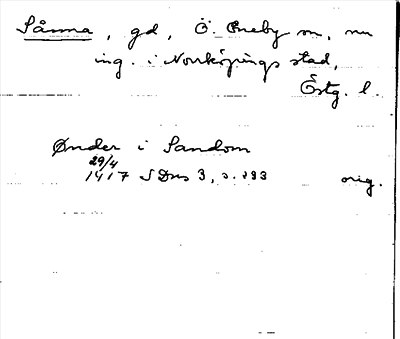 Sånna, gd, Ö. Eneby sn, nu
ing. i Norrköpings stad,
Östg. l.
Önder i Sandom
29/4
1417 SDns 3, s. 233
orig.